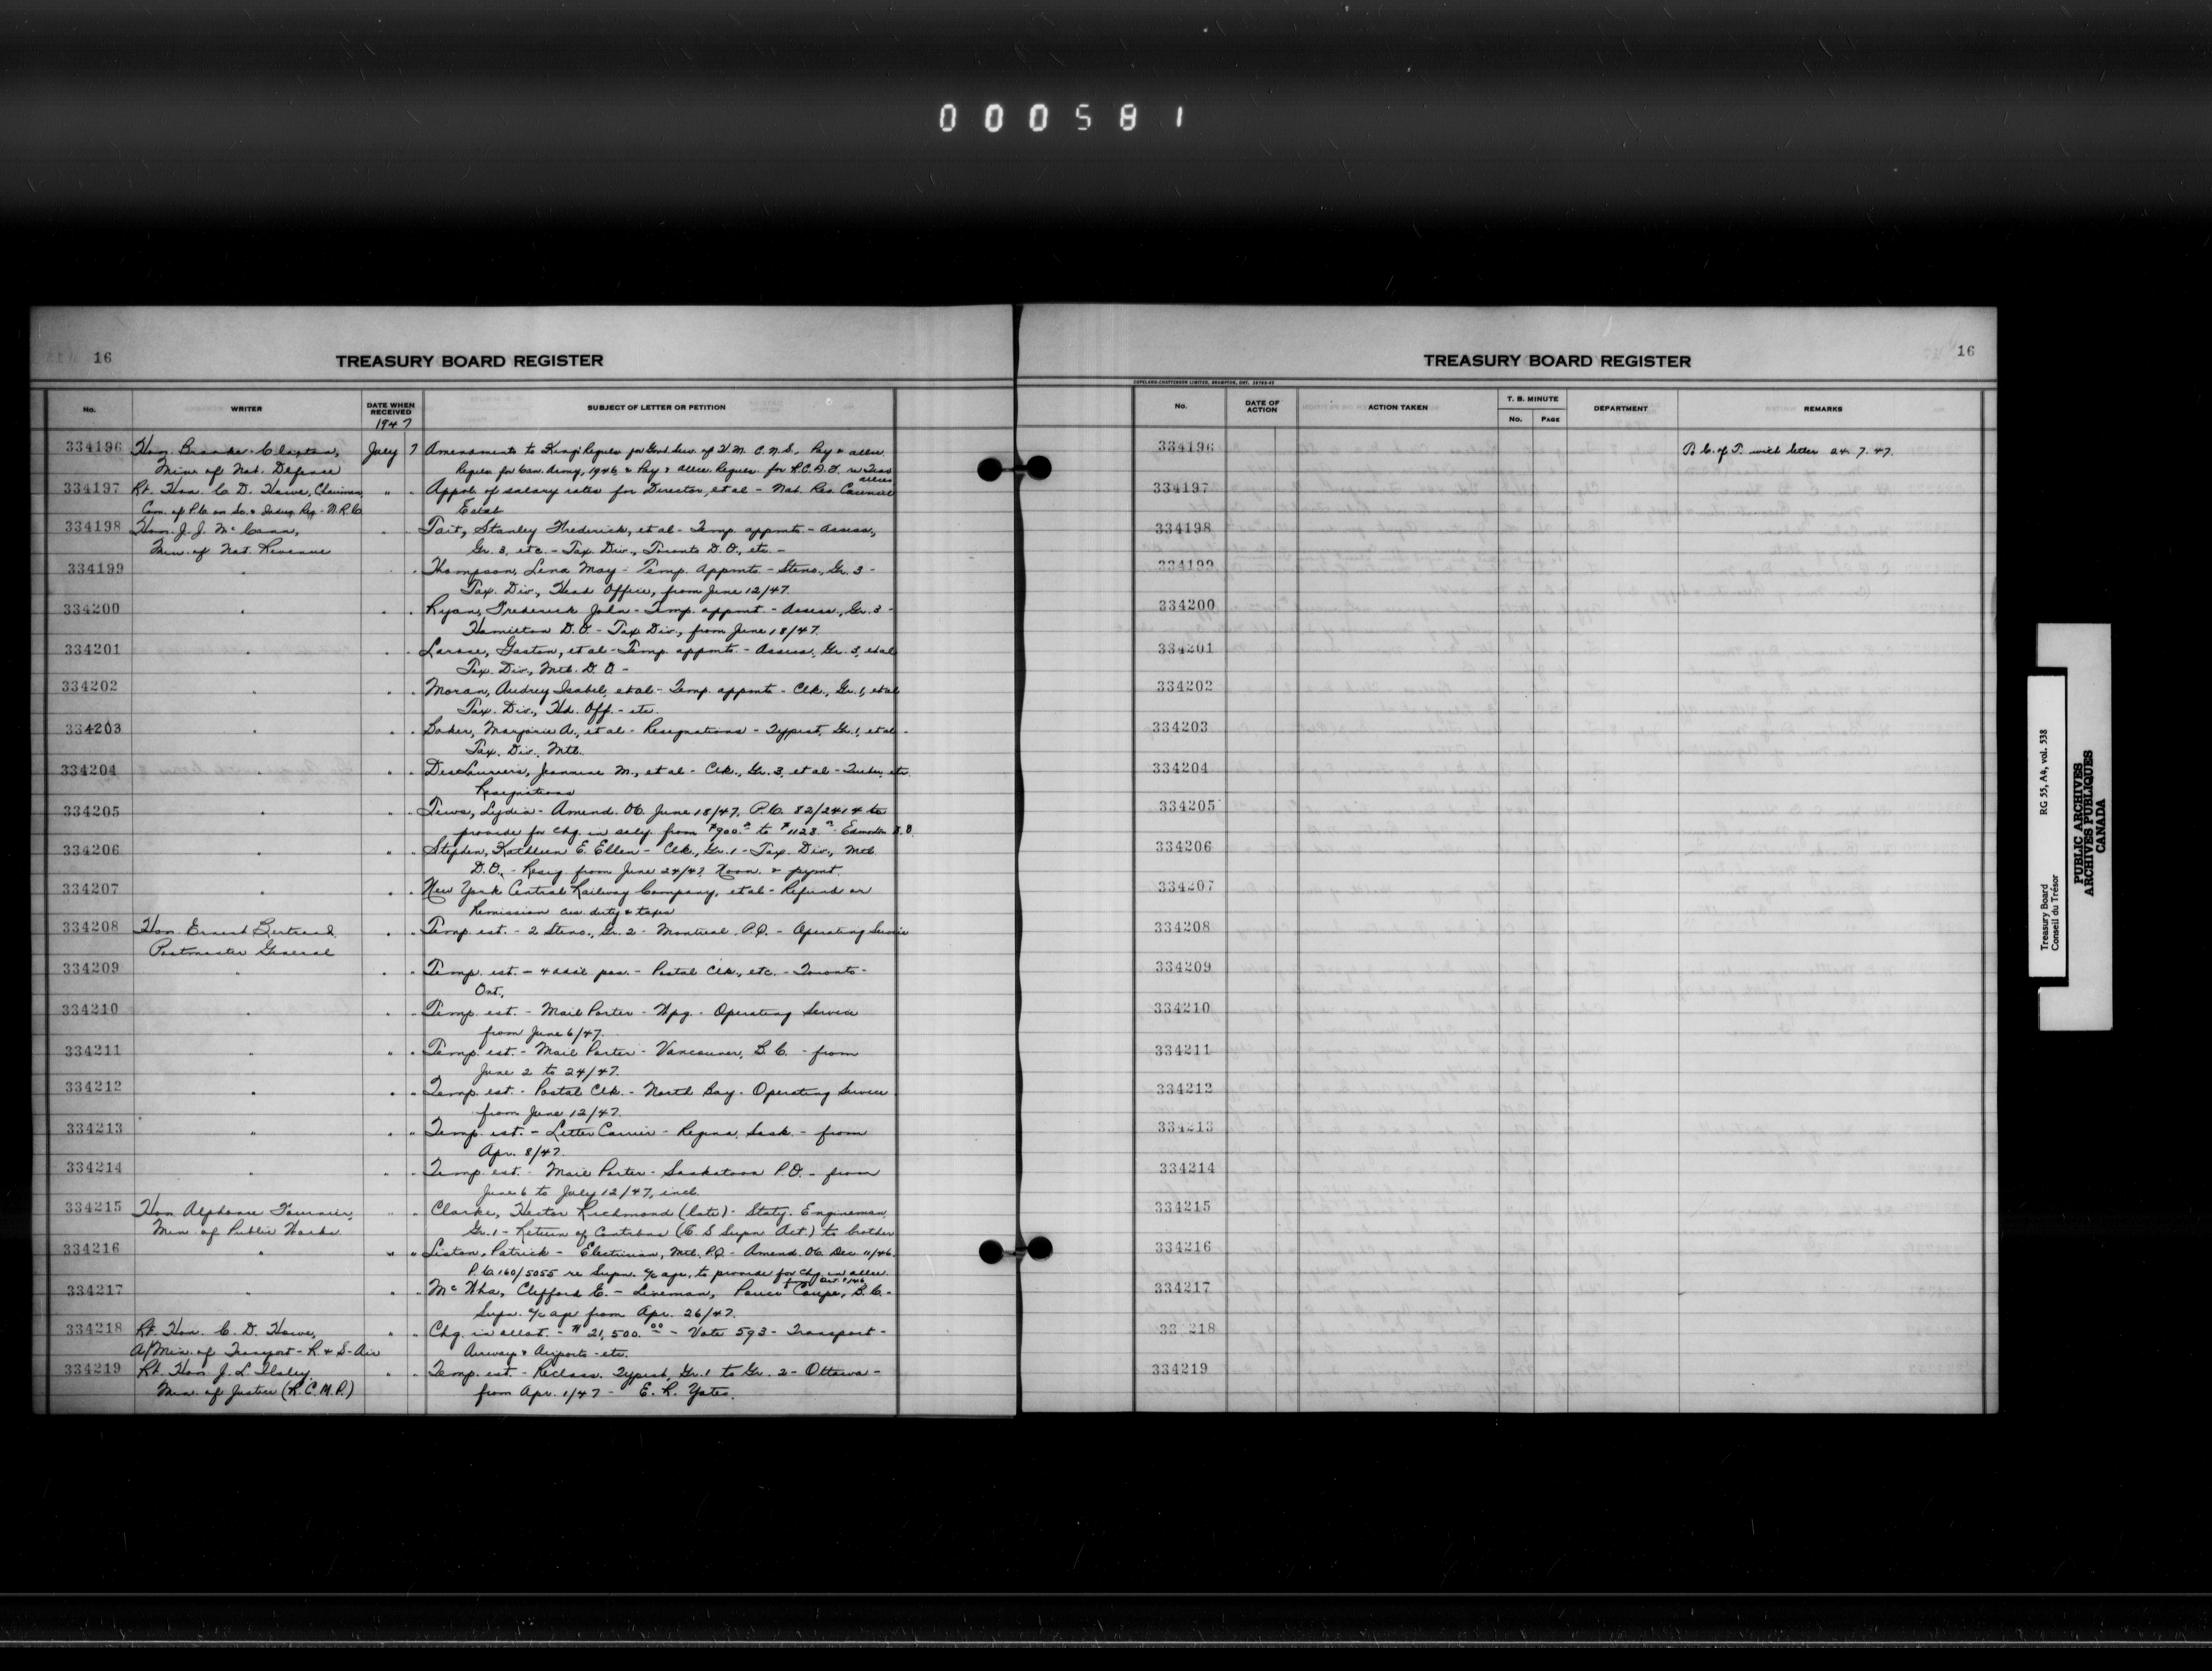 000581
16
TREASURY BOARD REGISTER
No. WRITER DATE WHEN RECEIVED SUBJECT OF LETTER OR PETITION
1947
334196 Hon. Brooke Claxton, July 7 Amendments to King's Regulns for Govt. Serv. of H.M.C.N.S., Pay & allce.
Minr. of Nat. Defense Regulns for Can. Army, 1946 & Pay & allce. Regulns for R.C.A.F. re Trans
allces
334197 Rt. Hon. C. D. Howe, Chairman " " Appvl. of salary rates for Director, et al - Nat. Res. Council
Com. of P.C. on Sc. & Indus. Res. - N.R.C. Estab
334198 Hon. J. J. McCann, " " Tait, Stanley Frederick, et al - Temp. appmts - Assess.,
Min. of Nat. Revenue Gr. 3, etc. - Tax. Div., Toronto D.O., etc. -
334199 " " " Thompson, Lena May - Temp. Appmts - Steno., Gr. 3 -
Tax. Div., Head Office, from June 12/47.
334200 " " " Ryan, Frederick John - Temp. appmt - Assess., Gr. 3 -
Hamilton D.O. - Tax Div., from June 18/47.
334201 " " " Larose, Gaston, et al - Temp. appmts. - Assess., Gr. 3, et al
Tax. Div., Mtl. D.O -
334202 " " " Moran, Audrey Isabel, et al - Temp. appmts - Clk., Gr. 1, et al
Tax. Div., Hd. Off. - etc.
334203 " " " Baker, Marjorie A., et al - Resignations - Typist, Gr. 1, et al -
Tax. Div., Mtl.
334204 " " " DesLauriers, Jeannine M., et al - Clk., Gr. 3, et al - etc.
Resignations
334205 " " " Tews, Lydia - Amend. OC June 18/47, P.C. 82/2414 to
provide for chg. in saly. from $900. to $1123. - Edmonton D.O.
334206 " " " Stephen, Kathleen E. Ellen - Clk., Gr. 1 - Tax. Div., Mtl.
D.O. - Resig from June 24/47 Noon. & pymt.
334207 " " " New York Central Railway Company, et al - Refund or
Remission cus. duty & taxes
334208 Hon. Ernest Bertrand " " Temp. est. - 2 Steno., Gr. 2 - Montreal P.Q. - Operating Service
Postmaster General
334209 " " " Temp. est. - 4 addl pos. - Postal Clk., etc. - Toronto -
Ont.
334210 " " " Temp. est. - Mail Porter - Wpg. - Operating Service
from June 6/47.
334211 " " " Temp. est. - Mail Porter - Vancouver, B.C. - from
June 2 to 24/47.
334212 " " " Temp. est. - Postal Clk. - North Bay - Operating Service
from June 12/47.
334213 " " " Temp. est. - Letter Carrier - Regina, Sask. - from
Apr. 8/47.
334214 " " " Temp. est. - Mail Porter - Saskatoon P.O. - from
June 6 to July 12/47, incl.
334215 Hon. Alphonse Fournier, " " Clarke, Hector Richmond (late) - Staty. Engineman,
Min. of Public Works Gr. 1 - Return of Contrbns (C S Supn Act) to brother
334216 " " " Liston, Patrick - Electrician, Mtl. P.Q. - Amend. OC. Dec. 11/46.
P.C. 160/5055 re Supn. a/c age, to provide for chg. in allce.
334217 " " " McWha, Clifford C. - Lineman, Pouce Coupe, B.C. -
Supn. a/c age from Apr. 26/47.
334218 Rt. Hon. C. D. Howe, " " Chg. in allot. - $21,500.00 - Vote 593 - Transport -
A/Min. of Transport - R & S - Air Airways & Airports - etc.
334219 Rt. Hon. J. L. Ilsley " " Temp. est. - Reclass. Typist, Gr. 1 to Gr. 2 - Ottawa -
Min. of Justice (R.C.M.P.) from Apr. 1/47 - E. R. Yates.
16
TREASURY BOARD REGISTER
COPELAND-CHATTERSON LIMITED, BRAMPTON, ONT.
No. DATE OF ACTION ACTION TAKEN T. B. MINUTE No. PAGE DEPARTMENT REMARKS
334196 P. C. of T. with letter 24.7.47.
334197
334198
334199
334200
334201
334202
334203
334204
334205
334206
334207
334208
334209
334210
334211
334212
334213
334214
334215
334216
334217
33 218
334219
Treasury Board RG 55, A4, vol. 538
Conseil du Trésor
PUBLIC ARCHIVES
ARCHIVES PUBLIQUES
CANADA